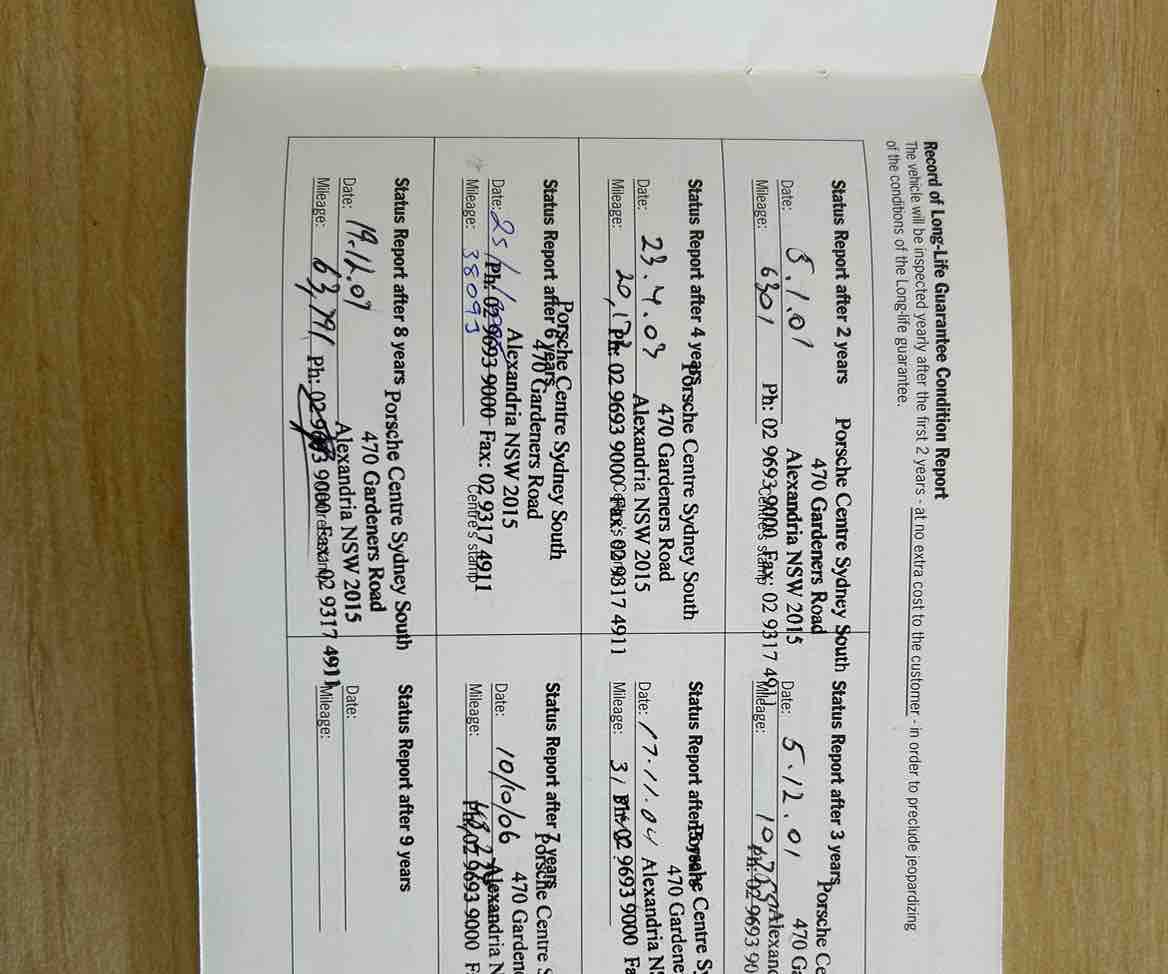 Record of Long-Life Guarantee Condition Report
The vehicle will be inspected yearly after the first 2 years - at no extra cost to the customer - in order to preclude jeopardizing
of the conditions of the Long-life guarantee.
Status Report after 2 years
Porsche Centre Sydney South
470 Gardeners Road
Alexandria NSW 2015
Ph: 02 9693 9000 Fax: 02 9317 4911
Date: 5.1.01
Mileage: 6301
Centre's stamp
Status Report after 3 years
Porsche Ce
470 Ga
Alexand
Ph: 02 9693 90
Date: 5.12.01
Mileage:
Status Report after 4 years
Porsche Centre Sydney South
470 Gardeners Road
Alexandria NSW 2015
Ph: 02 9693 9000 Fax: 02 9317 4911
Date: 23.4.03
Mileage:
Centre's stamp
Status Report after 5 years
Porsche Centre Sy
470 Gardene
Alexandria N
Ph: 02 9693 9000 Fa
Date: 17.11.04
Mileage:
Status Report after 6 years
Porsche Centre Sydney South
470 Gardeners Road
Alexandria NSW 2015
Ph: 02 9693 9000 Fax: 02 9317 4911
Date: 25/
Mileage: 38093
Centre's stamp
Status Report after 7 years
Porsche Centre S
470 Garden
Alexandria N
Ph: 02 9693 9000 F
Date: 10/10/06
Mileage:
Status Report after 8 years
Porsche Centre Sydney South
470 Gardeners Road
Alexandria NSW 2015
Ph: 02 9693 9000 Fax: 02 9317 4911
Date: 19.12.07
Mileage: 63,791
Status Report after 9 years
Date:
Mileage: